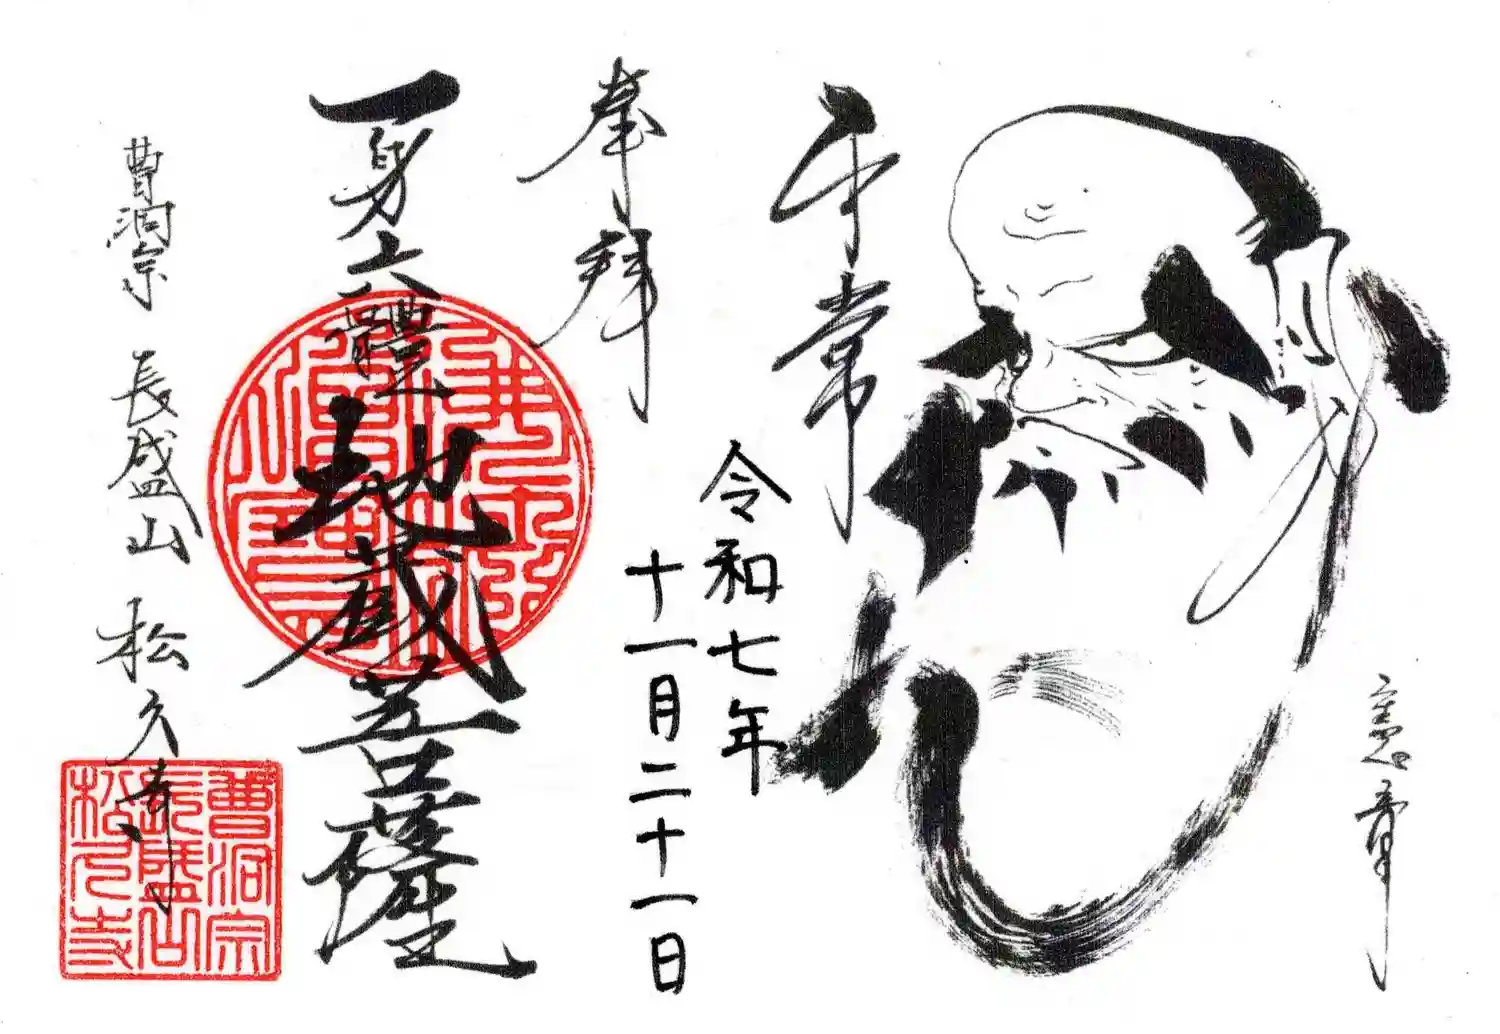 平常
令和七年
十一月二十一日
奉拝
一身六體地蔵菩薩
曹洞宗 長盛山 松久寺
曹洞宗
長盛山
松久寺